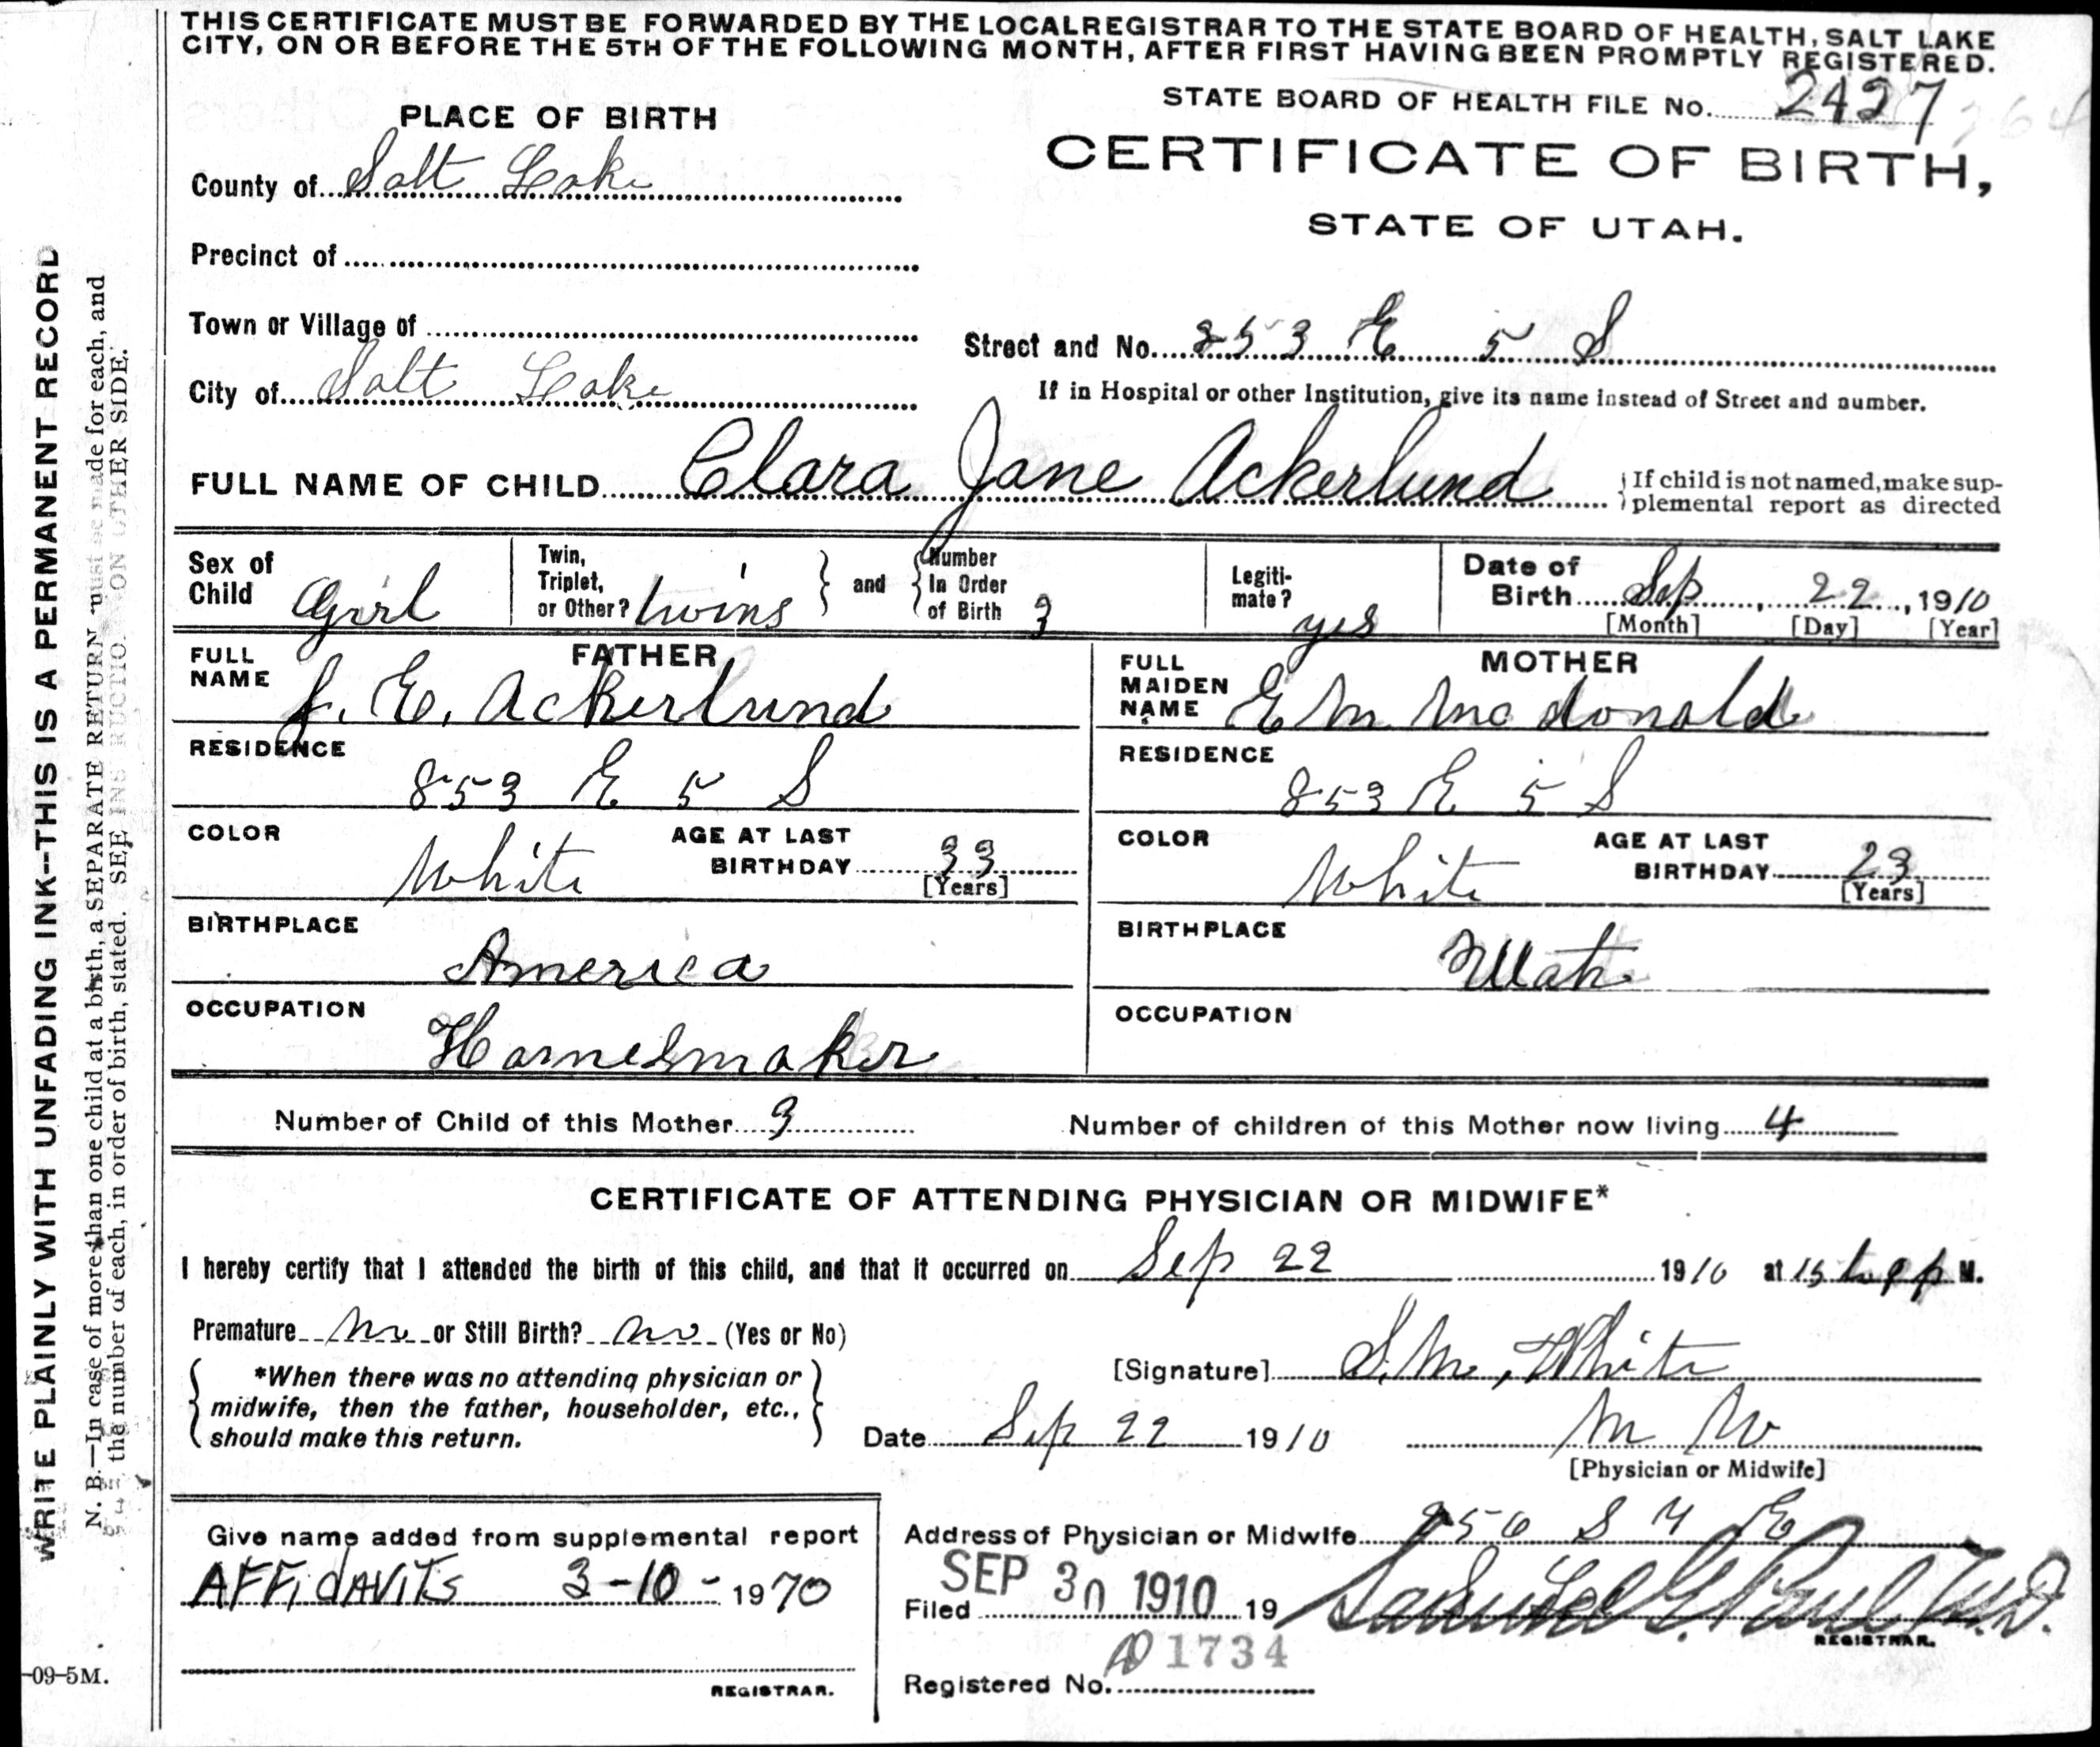 THIS CERTIFICATE MUST BE FORWARDED BY THE LOCAL REGISTRAR TO THE STATE BOARD OF HEALTH, SALT LAKE
CITY, ON OR BEFORE THE 5TH OF THE FOLLOWING MONTH, AFTER FIRST HAVING BEEN PROMPTLY REGISTERED.
STATE BOARD OF HEALTH FILE No. 2427 264
PLACE OF BIRTH
CERTIFICATE OF BIRTH,
STATE OF UTAH.
County of Salt Lake
Precinct of
Town or Village of
Street and No. 853 E 5 S
City of Salt Lake
If in Hospital or other Institution, give its name instead of Street and number.
FULL NAME OF CHILD Clara Jane Ackerlund
If child is not named, make sup-
plemental report as directed
Sex of Child Girl
Twin, Triplet, or Other? twins and Number In Order of Birth 3
Legiti-mate? yes
Date of Birth Sep, 22, 1910
[Month] [Day] [Year]
FATHER
FULL NAME J. E. Ackerlund
RESIDENCE
853 E 5 S
COLOR White AGE AT LAST BIRTHDAY 33
[Years]
BIRTHPLACE
America
OCCUPATION
Harnessmaker
MOTHER
FULL MAIDEN NAME E M Mcdonald
RESIDENCE
853 E 5 S
COLOR White AGE AT LAST BIRTHDAY 23
[Years]
BIRTHPLACE
Utah
OCCUPATION
Number of Child of this Mother 3 Number of children of this Mother now living 4
CERTIFICATE OF ATTENDING PHYSICIAN OR MIDWIFE*
I hereby certify that I attended the birth of this child, and that it occurred on Sep 22 1910 at 15 to 9 p M.
Premature no or Still Birth? no (Yes or No)
*When there was no attending physician or
midwife, then the father, householder, etc.,
should make this return.
[Signature] S. M. White
Date Sep 22 1910 M W
[Physician or Midwife]
Give name added from supplemental report
AFFidAViTs 3-10-1970
REGISTRAR.
Address of Physician or Midwife 256 S 4 E
Filed SEP 30 1910 19 Samuel G. Paul M.D.
REGISTRAR.
Registered No. 1734
WRITE PLAINLY WITH UNFADING INK--THIS IS A PERMANENT RECORD
N. B.—In case of more than one child at a birth, a SEPARATE RETURN must be made for each, and
the number of each, in order of birth, stated. SEE INSTRUCTIO ON OTHER SIDE.
-09-5M.